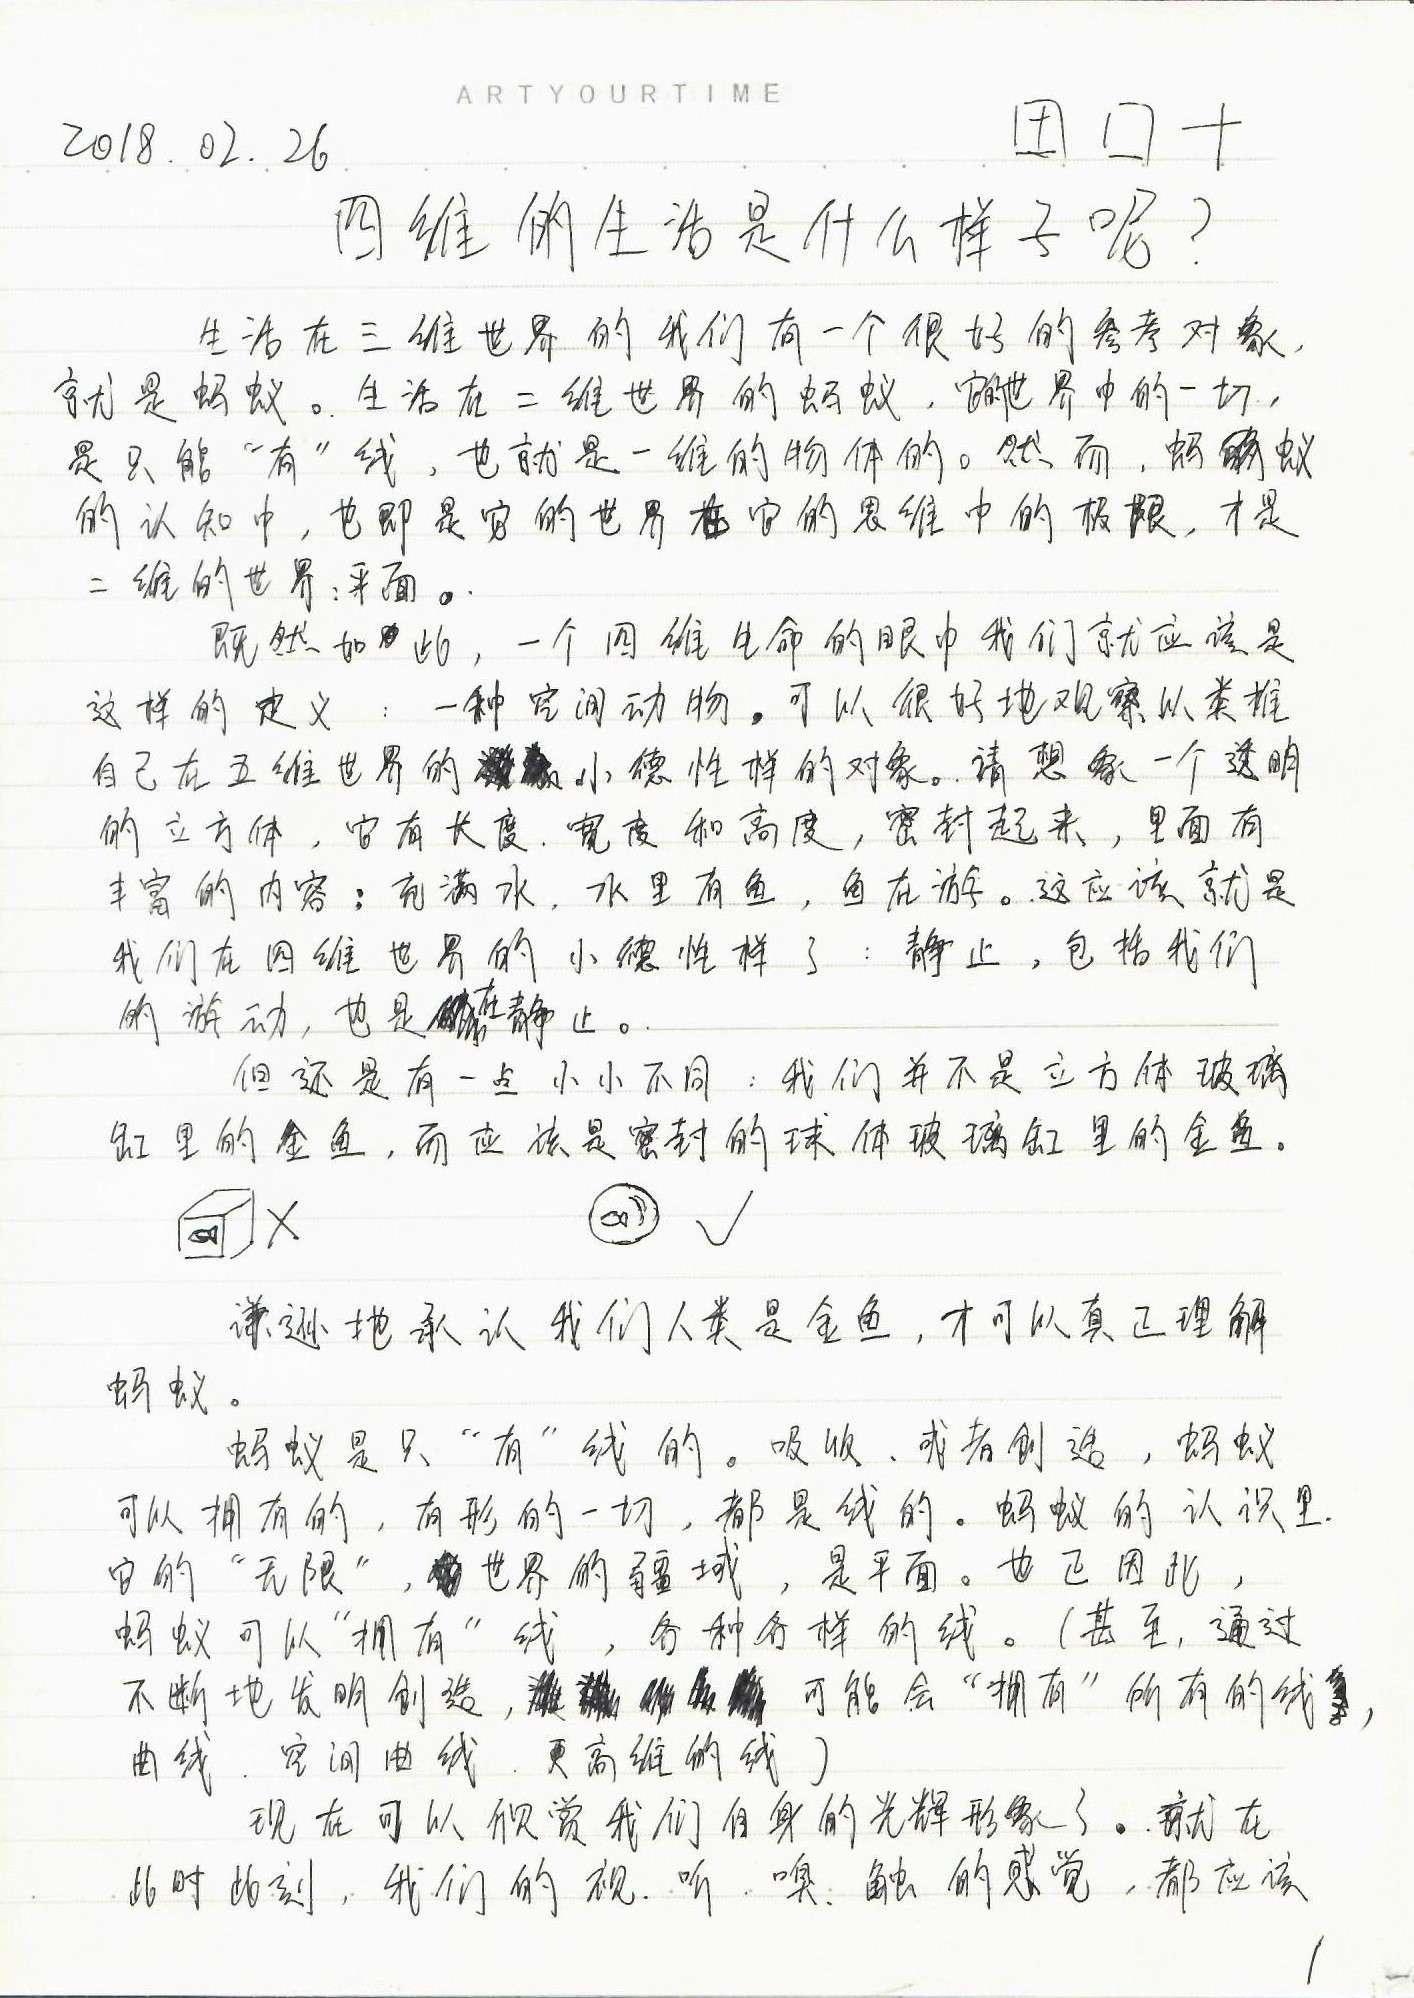 ARTYOURTIME
2018.02.26
田口十
四维的生活是什么样子呢?
生活在三维世界的我们有一个很好的参考对象,
就是蚂蚁。生活在二维世界的蚂蚁,它的世界中的一切,
是只能“有”线,也就是一维的物体的。然而,蚂蚁
的认知中,也即是它的世界在它的思维中的极限,才是
二维的世界:平面。
既然如此,一个四维生命的眼中我们就应该是
这样的定义:一种空间动物。可以很好地观察以类推
自己在五维世界的小德性样的对象。请想象一个透明
的立方体,它有长度、宽度和高度,密封起来,里面有
丰富的内容:充满水,水里有鱼,鱼在游。这应该就是
我们在四维世界的小德性样了:静止,包括我们
的游动,也是在静止。
但还是有一点小小不同:我们并不是立方体玻璃
缸里的金鱼,而应该是密封的球体玻璃缸里的金鱼。
谦逊地承认我们人类是金鱼,才可以真正理解
蚂蚁。
蚂蚁是只“有”线的。吸收、或者创造,蚂蚁
可以拥有的,有形的一切,都是线的。蚂蚁的认识里
它的“无限”,世界的疆域,是平面。也正因此,
蚂蚁可以“拥有”线,各种各样的线。(甚至,通过
不断地发明创造,可能会“拥有”所有的线,
曲线、空间曲线、更高维的线)
现在可以欣赏我们自身的光辉形象了。就在
此时此刻,我们的视、听、嗅、触的感觉,都应该
1